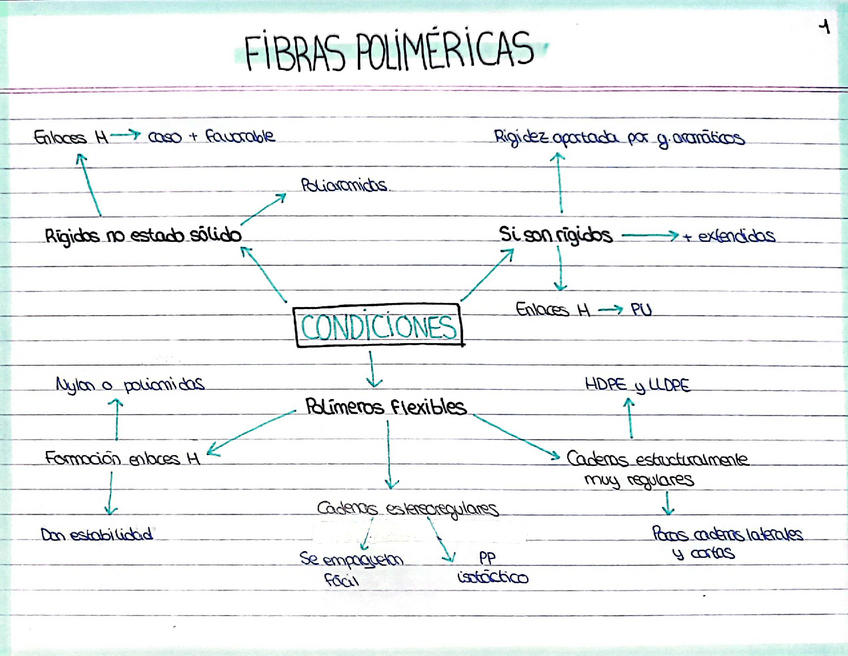 1
FIBRAS POLIMÉRICAS
Enlaces H → caso + favorable
Rigidez aportada por g. aromáticos
Poliaramidas.
Rígidos no estado sólido
Si son rígidos → + extendidas
Enlaces H → PU
CONDICIONES
Nylon o poliamidas
HDPE y LLDPE
Polímeros flexibles
Formación enlaces H
Cadenas estructuralmente
muy regulares
Cadenas estereoregulares
Dan estabilidad
Pocas cadenas laterales
y cortas
Se empaquetan
fácil
PP
isotáctico